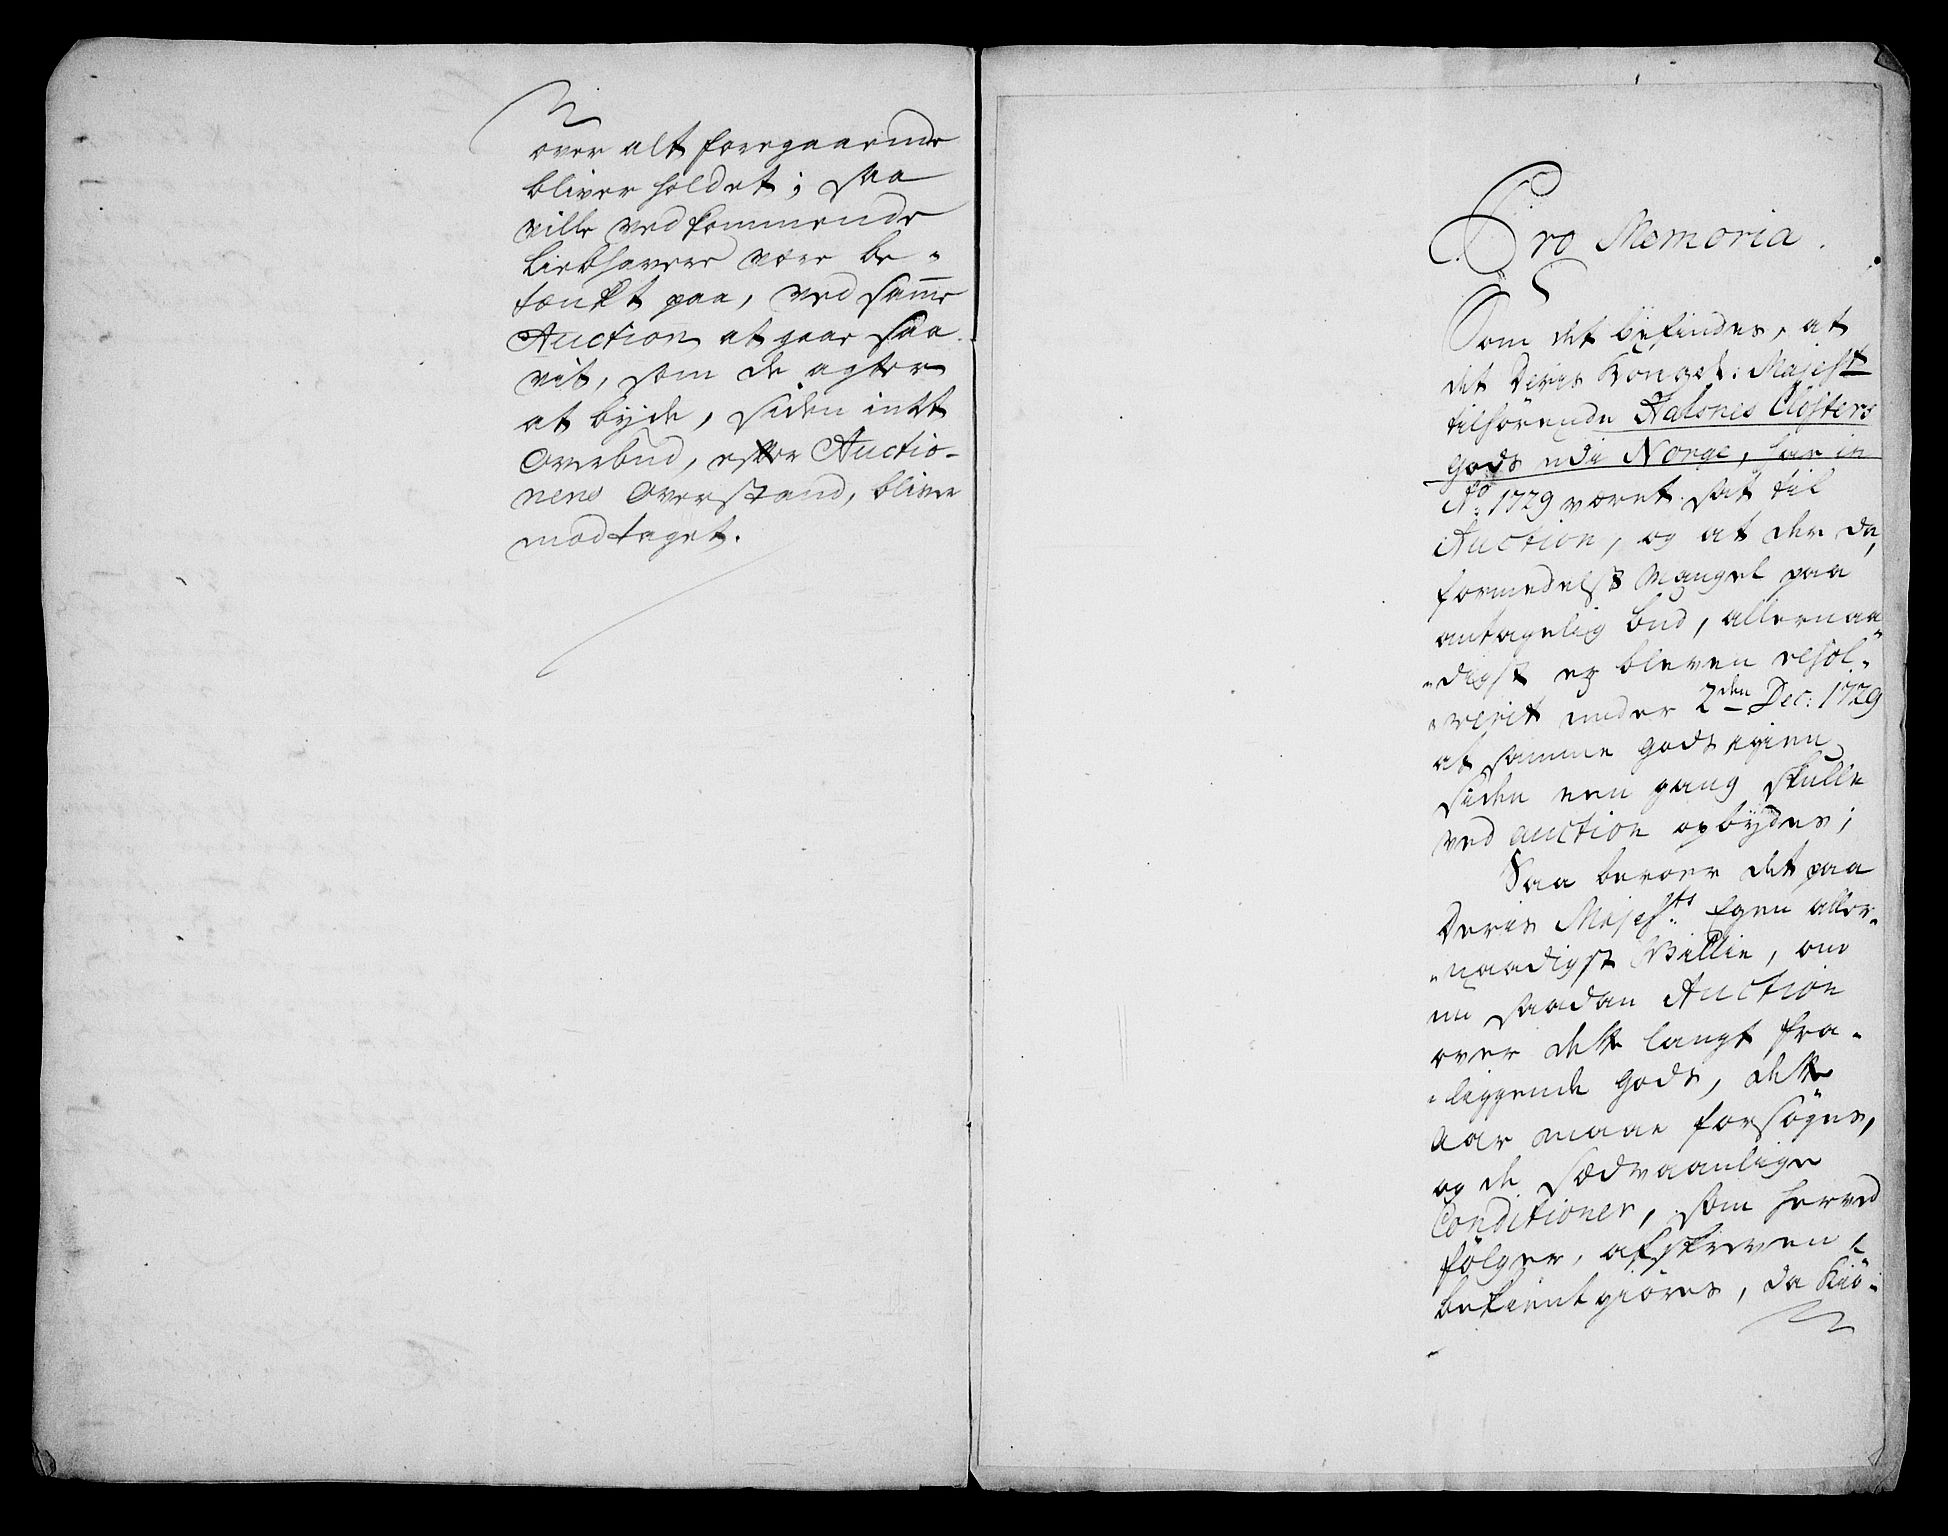 over alt foregaaende
bliver holdet; saa
ville vedkommende
Liebhavere være be-
tænkt paa, ved samme
Auction at gaae saa
vit, som de agter
at byde, siden intet
Overbud, efter Auctio-
nens Overstand, bliver
modtaget.
Pro Memoria.
Som det befindes, at
det Deris Kongel: Majest
tilhörende Halsnes Closters
gods udi Norge, har in
Ao. 1729 været sat til
Auction, og at der da,
formedelst Mangel paa
antagelig bud, allernaa-
digst er bleven resol-
veret under 2den Dec: 1729
at samme gods igien
siden een gang skulle
ved auction opbydes;
Saa beroer det paa
Deris Majests: Egen aller-
naadigst Villie, om
nu saadan Auction
over dette langt fra-
liggende gods, dette
Aar maae forsöges,
og de sædvaanlige
Conditioner, som herved
fölger, afskreven,
bekientgiöres, da Kiö-